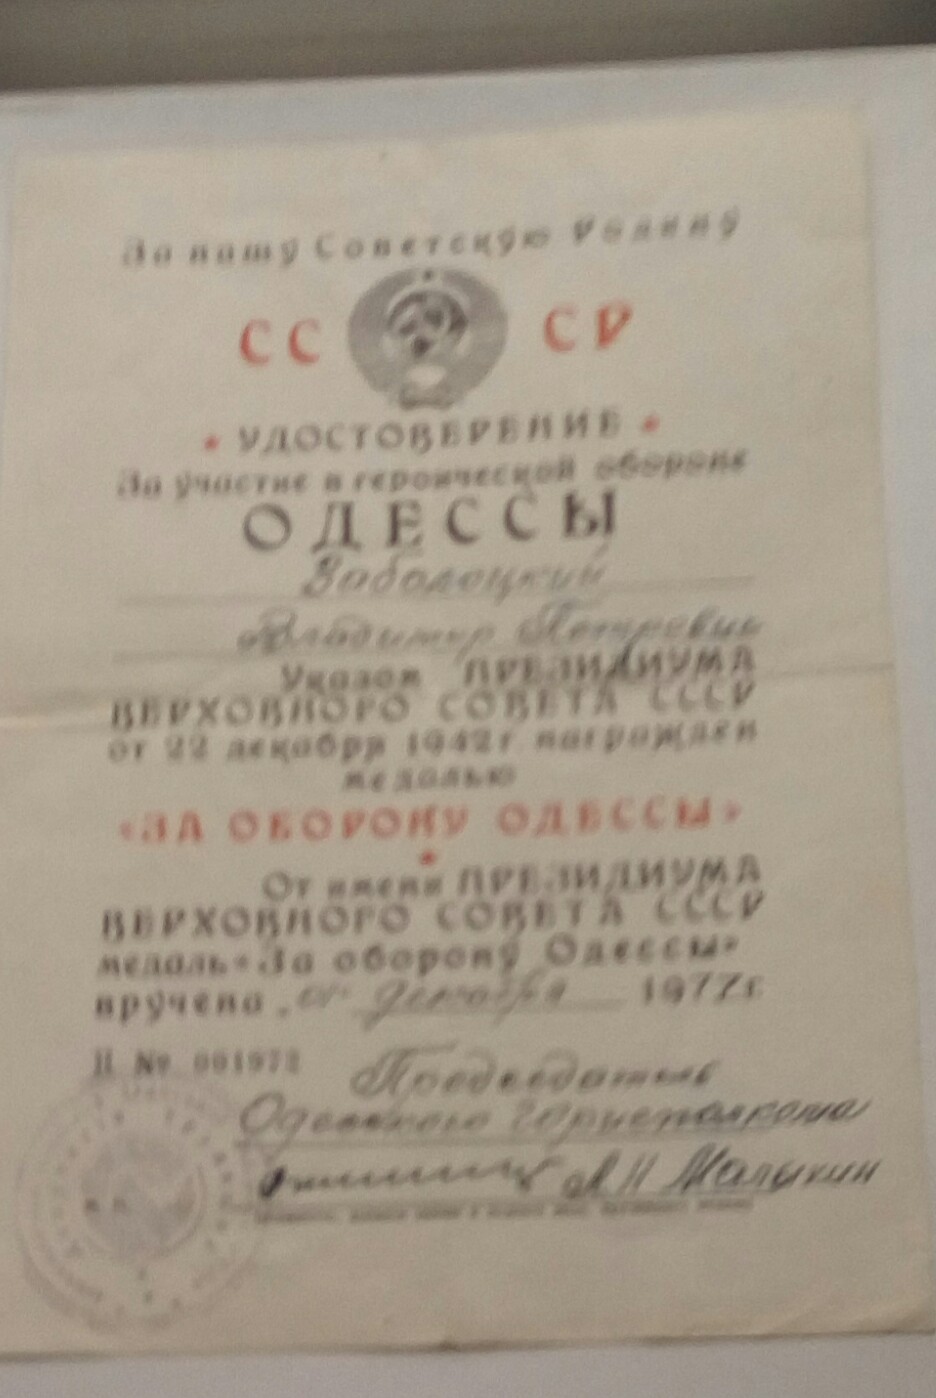 За нашу Советскую Родину
СС СР
УДОСТОВЕРЕНИЕ
За участие в героической обороне
ОДЕССЫ
Заболоцкий
Владимир Петрович
Указом ПРЕЗИДИУМА
ВЕРХОВНОГО СОВЕТА СССР
от 22 декабря 1942 г. награжден
медалью
«ЗА ОБОРОНУ ОДЕССЫ»
От имени ПРЕЗИДИУМА
ВЕРХОВНОГО СОВЕТА СССР
медаль «За оборону Одессы»
вручена декабря 1977 г.
Н № 001972
Председатель
Одесского горисполкома
Малыхин